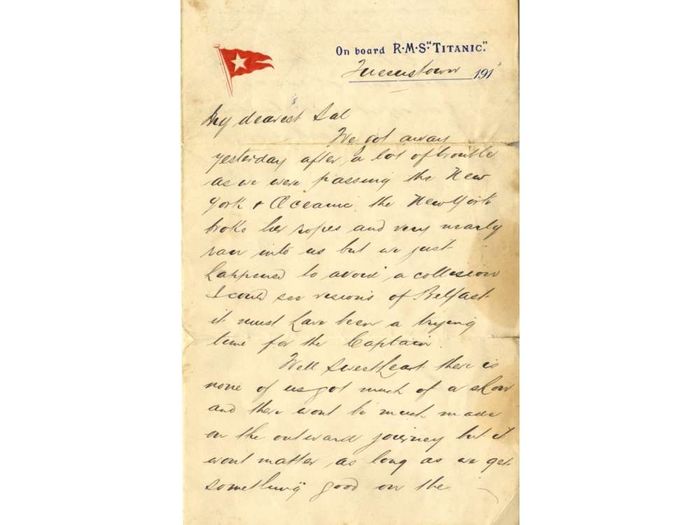 On board R·M·S "TITANIC."
Queenstown 191
My dearest Sal
We got away
yesterday after a lot of trouble
as we were passing the New
York & Oceanic the New York
broke her ropes and very nearly
ran into us but we just
happened to avoid a collision
I could see visions of Belfast
it must have been a trying
time for the Captain.
Well Sweetheart there is
none of us got much of a show
and there wont be much made
on the outward journey but it
wont matter, as long as we get
something good on the